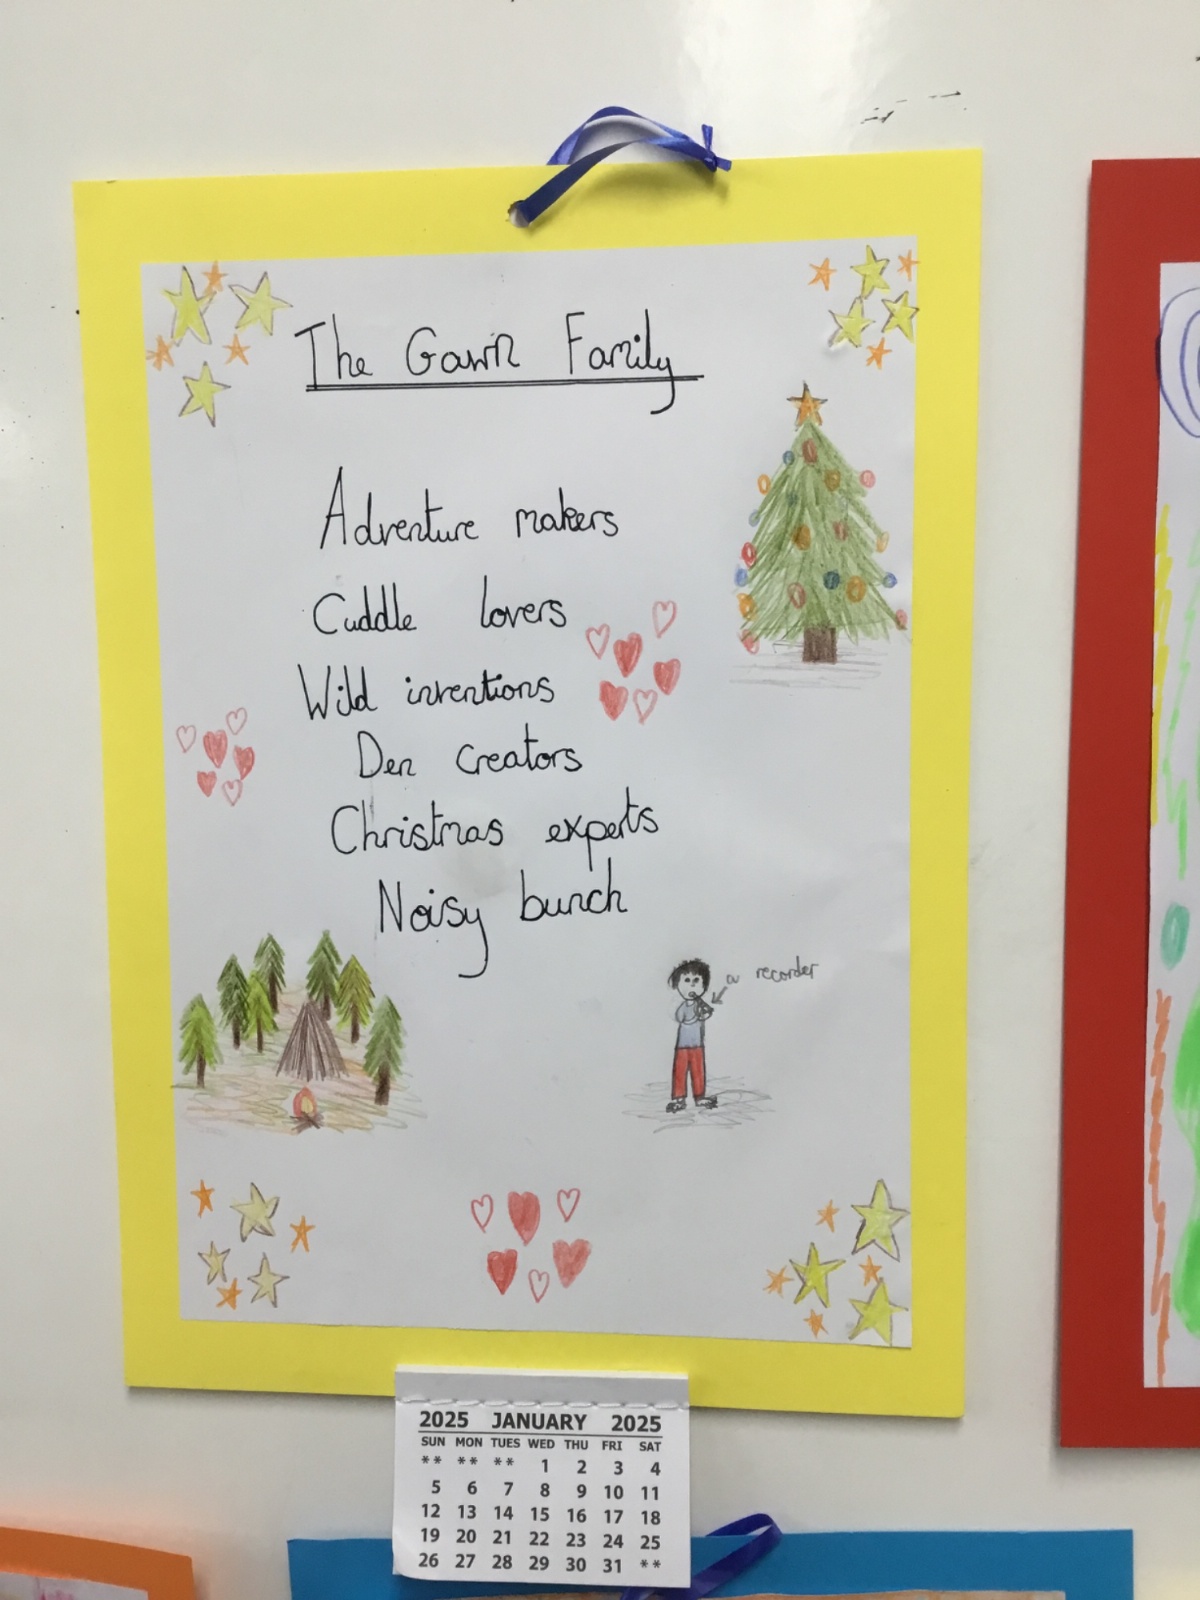 The Gawn Family
Adventure makers
Cuddle lovers
Wild inventions
Den creators
Christmas experts
Noisy bunch
a recorder
2025 JANUARY 2025
SUN MON TUES WED THU FRI SAT
** ** ** 1 2 3 4
5 6 7 8 9 10 11
12 13 14 15 16 17 18
19 20 21 22 23 24 25
26 27 28 29 30 31 **